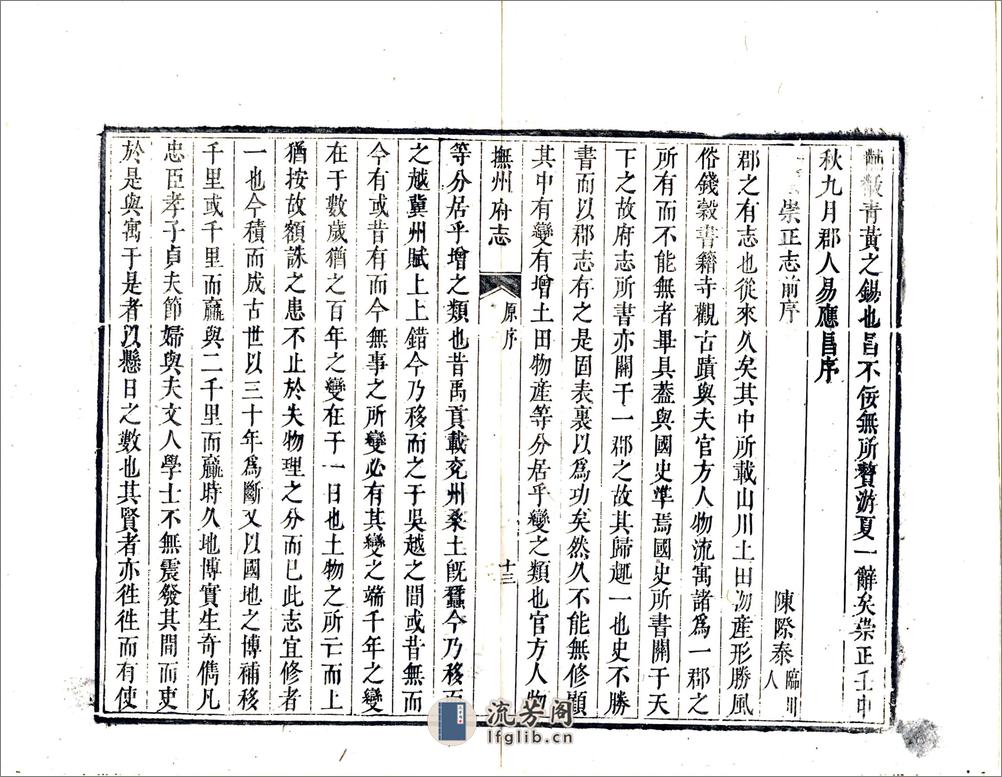 黼黻青黃之錫也昌不佞無所贅游夏一辭矣崇正壬申
秋九月郡人易應昌序
崇正志前序
陳際泰臨川人
郡之有志也從來久矣其中所載山川土田物産形勝風
俗錢榖書籍寺觀古蹟與夫官方人物流寓諸爲一郡之
所有而不能無者畢具葢與國史準焉國史所書關于天
下之故府志所書亦關于一郡之故其歸趣一也史不勝
書而以郡志有之是固表裏以爲功矣然久不能無修顧
其中有變有增土田物産等分居乎變之類也官方人物
撫州府志
原序
十三
等分居乎增之類也昔禹貢載兖州桑土旣蠶今乃移而
之越冀州賦上上錯今乃移而之于吳越之間或昔無而
今有或昔有而今無事之所變必有其變之端千年之變
在于數歲猶之百年之變在于一日也土物之所亡而上
猶按故額誅之患不止於失物理之分而已此志宜修者
一也今積而成古世以三十年爲斷又以國地之博補移
千里或千里而羸與二千里而羸時久地博實生奇儁凡
忠臣孝子貞夫節婦與夫文人學士不無震發其間而吏
於是與寓于是者以縣日之數也其賢者亦徃徃而有使
流芳阁
lfglib.cn